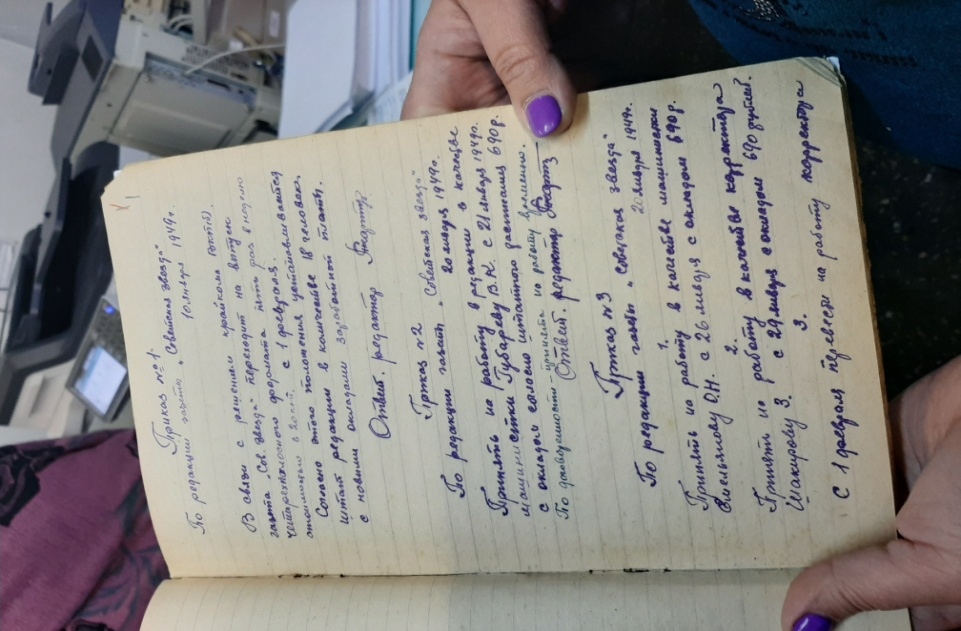 Приказ № 1.
По редакции газеты „Советская звезда"
10 января 1949 г.
В связи с решением крайкома ВКП(б),
газета „Сов. звезда" переходит на выпуск
четырехполосного формата пять раз в неделю
стоимостью в
Согласно этого положения устанавливается
штат редакции в количестве 18 человек.
с новыми окладами заработной платы
с 1 февраля.
Ответ. редактор
Приказ № 2
По редакции газеты „Советская звезда"
20 января 1949 г.
Принять на работу в редакцию в качестве
машинистки Губареву В.К. с 21 января 1949 г.
с окладом согласно штатного расписания 690 р.
По договоренности – принята на работу временно.
Ответ. редактор
Приказ № 3
По редакции газеты „Советская звезда"
20 января 1949 г.
1.
Принять на работу в качестве машинистки
Емельянову О.Н. с 26 января с окладом 690 р.
2.
Принять на работу в качестве корректора
Шакирову З. с 29 января с окладом 690 рублей.
3.
С 1 февраля перевести на работу корректора